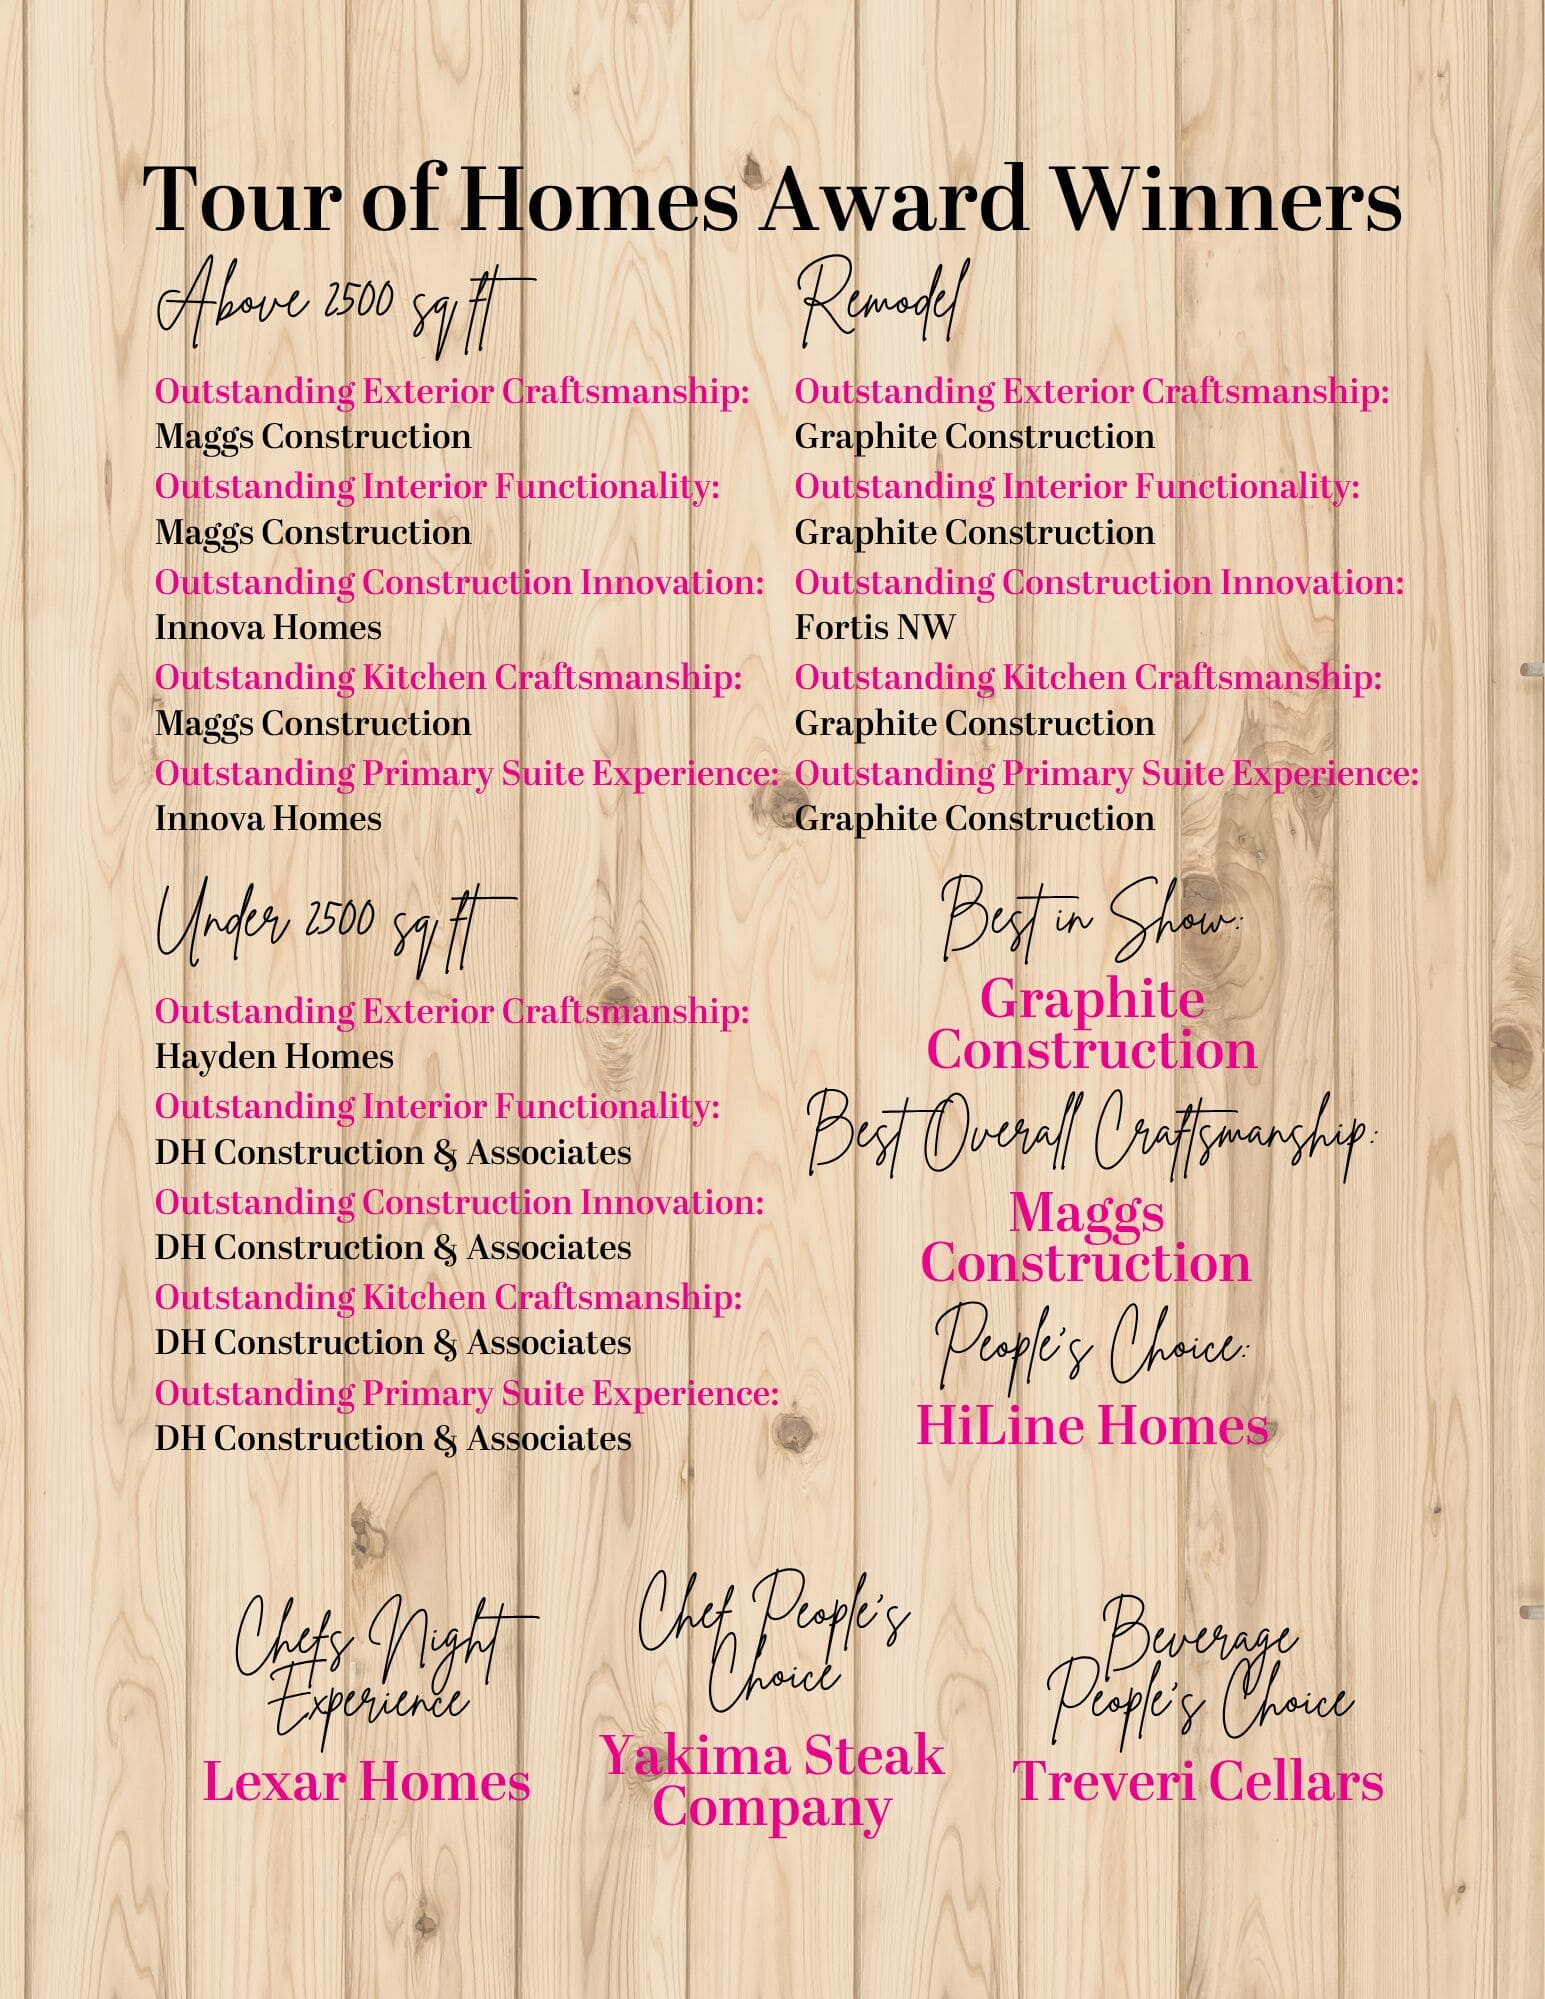 Tour of Homes Award Winners
Above 2500 sq ft
Outstanding Exterior Craftsmanship:
Maggs Construction
Outstanding Interior Functionality:
Maggs Construction
Outstanding Construction Innovation:
Innova Homes
Outstanding Kitchen Craftsmanship:
Maggs Construction
Outstanding Primary Suite Experience:
Innova Homes
Under 2500 sq ft
Outstanding Exterior Craftsmanship:
Hayden Homes
Outstanding Interior Functionality:
DH Construction & Associates
Outstanding Construction Innovation:
DH Construction & Associates
Outstanding Kitchen Craftsmanship:
DH Construction & Associates
Outstanding Primary Suite Experience:
DH Construction & Associates
Remodel
Outstanding Exterior Craftsmanship:
Graphite Construction
Outstanding Interior Functionality:
Graphite Construction
Outstanding Construction Innovation:
Fortis NW
Outstanding Kitchen Craftsmanship:
Graphite Construction
Outstanding Primary Suite Experience:
Graphite Construction
Best in Show:
Graphite
Construction
Best Overall Craftsmanship:
Maggs
Construction
People's Choice:
HiLine Homes
Chefs Night
Experience
Lexar Homes
Chef People's
Choice
Yakima Steak
Company
Beverage
People's Choice
Treveri Cellars